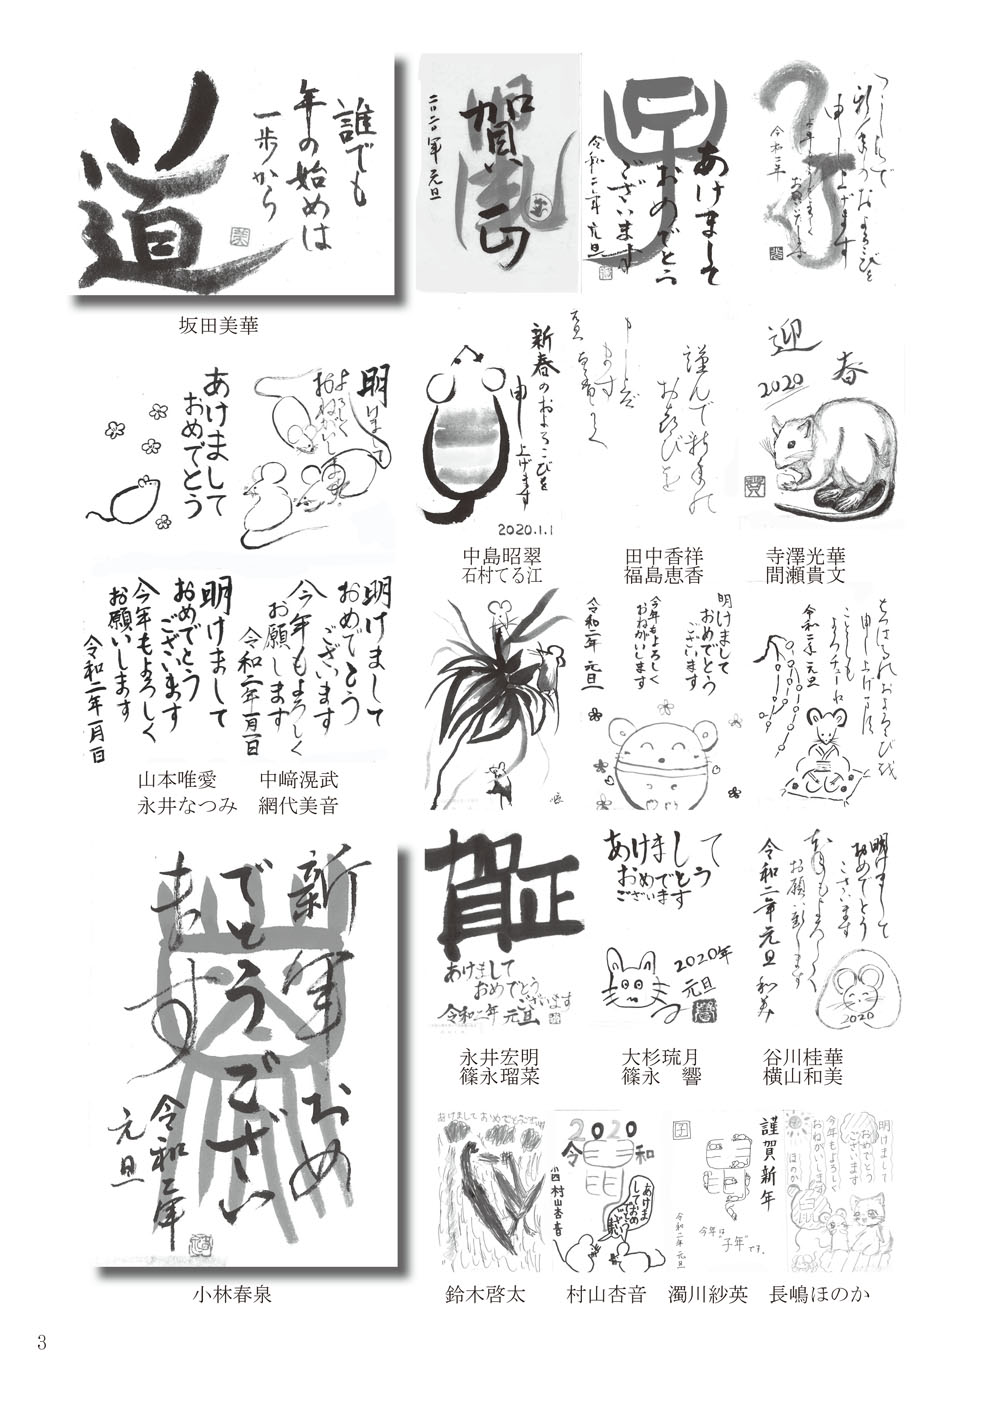 誰でも
年の始めは
一歩から
道
坂田美華
賀正
二〇二〇年元旦
あけまして
おめでとう
ございます
令和二年元旦
新年のおよろこびを
申し上げます
令和二年
明けまして
よろしく
おねがいします
あけまして
おめでとう
新春のおよろこびを
申し上げます
2020.1.1
謹んで新年の
お慶びを
申し上げます
元旦
迎春
2020
中島昭翠
石村てる江
田中香祥
福島恵香
寺澤光華
間瀬貴文
明けまして
おめでとう
ございます
今年もよろしく
お願いします
令和二年一月一日
明けまして
おめでとう
ございます
今年もよろしく
お願いします
令和二年一月一日
山本唯愛
永井なつみ
中﨑滉武
網代美音
明けまして
おめでとう
ございます
今年もよろしく
おねがいします
令和二年 元旦
申し上げます
ことしも
よろチューね
令和二年元旦
新年おめ
でとうござい
ます
令和二年
元旦
小林春泉
賀正
あけまして
おめでとう
ございます
令和二年 元旦
あけまして
おめでとう
ございます
2020年
元旦
明けまして
おめでとう
ございます
本年もよろしく
お願い致します
令和二年元旦 和美
2020
永井宏明
篠永瑠菜
大杉琉月
篠永 響
谷川桂華
横山和美
あけましておめでとうございます
2020
令和
小四 村山杏音
あけま
しておめ
でとう
ござい
ます
謹賀新年
今年は
"子年"です。
令和二年 元旦
明けまして
おめでとう
ございます
今年もよろしく
おねがいします
ほのか
鼠
鈴木啓太
村山杏音
濁川紗英
長嶋ほのか
3